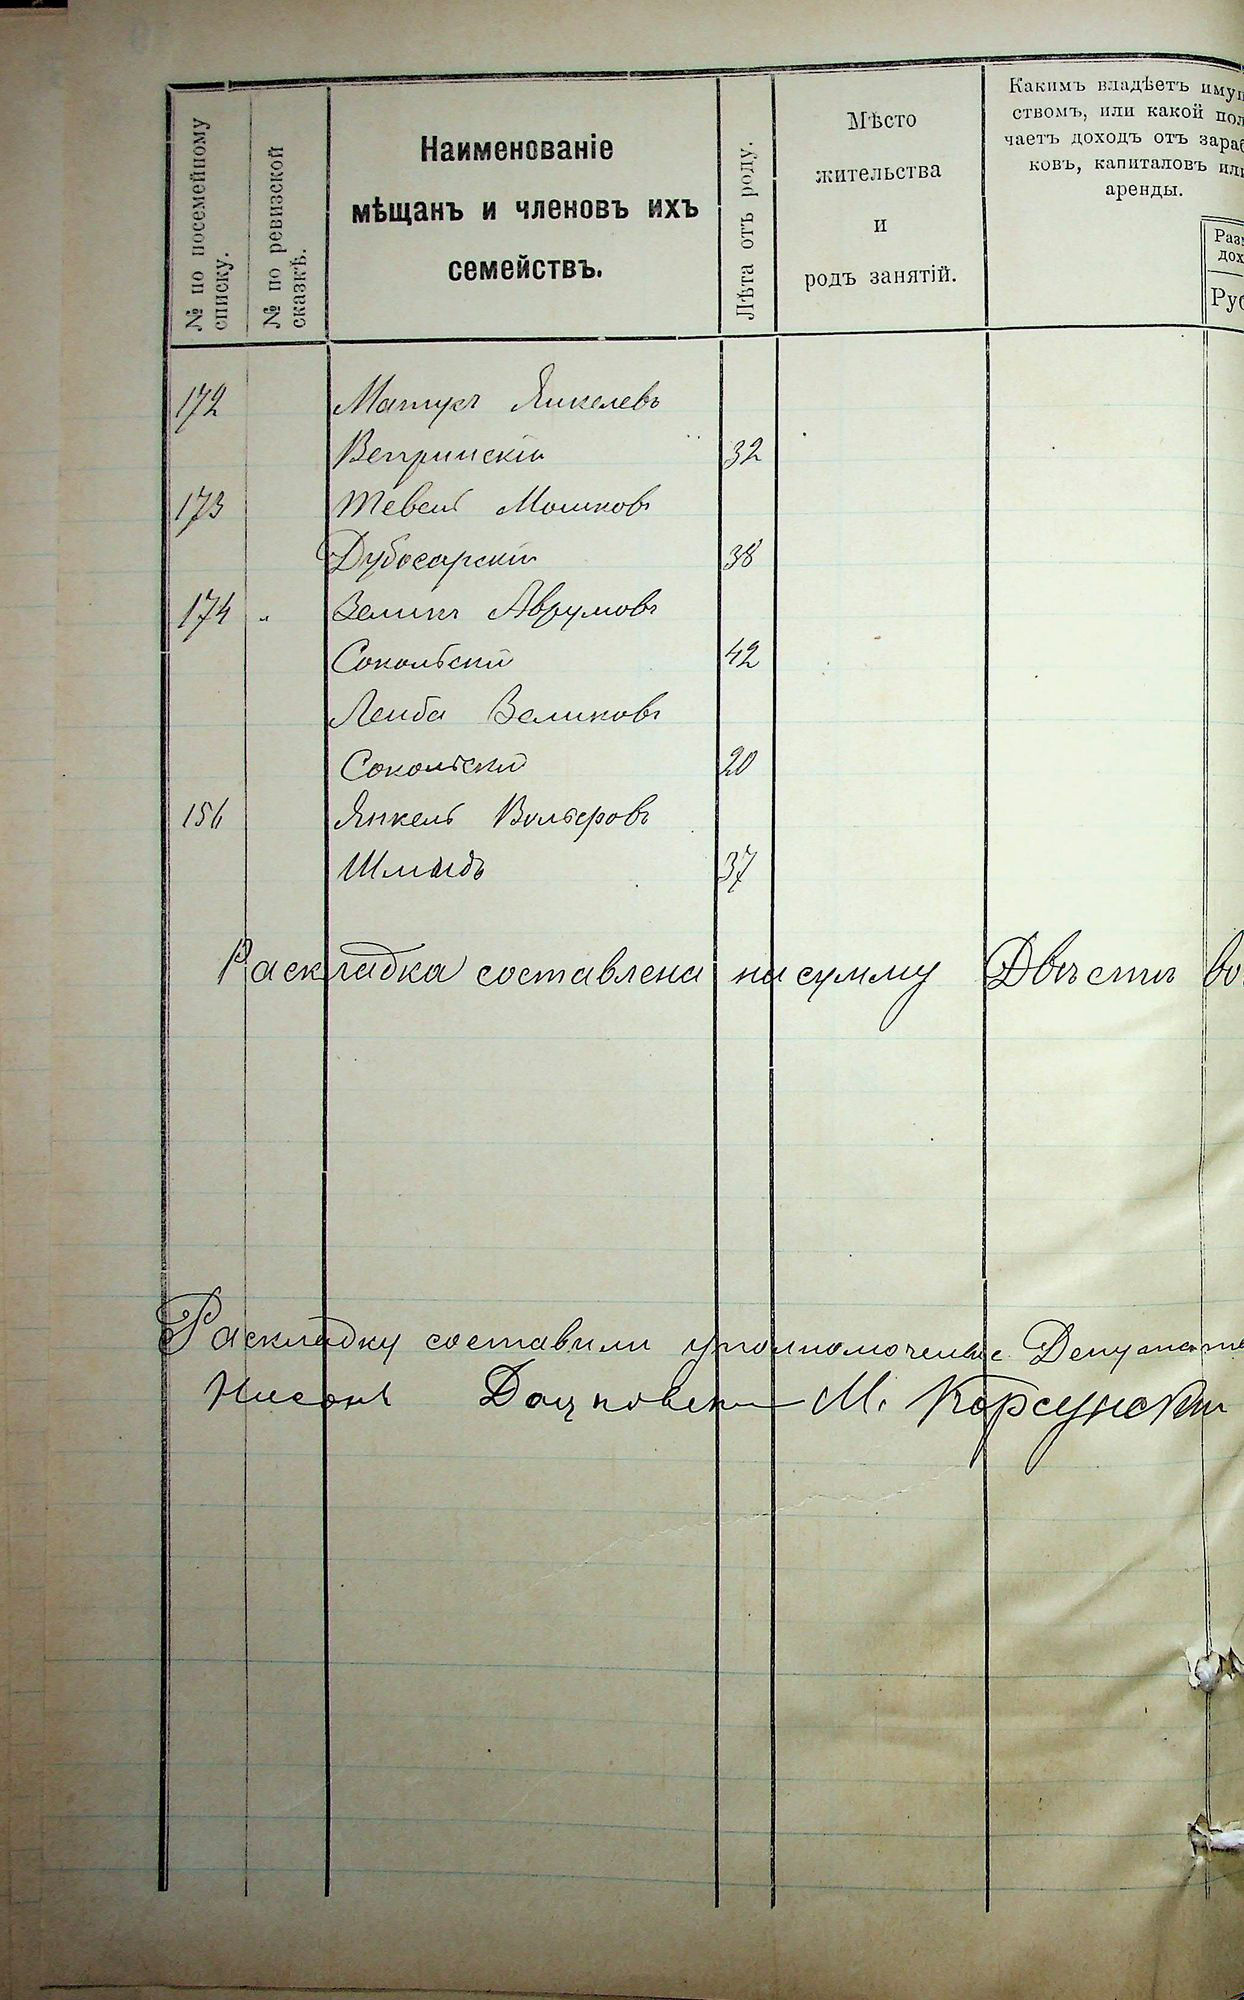 № по посемейному
списку.
№ по ревизской
сказкѣ.
Наименованіе
мѣщанъ и членовъ ихъ
семействъ.
Лѣта отъ роду.
Мѣсто
жительства
и
родъ занятій.
Какимъ владѣетъ
ствомъ, или какой
чаетъ доходъ отъ
ковъ, капиталовъ
аренды.
172 Янкелевъ
Вепринскій 32
173 Тевель Мошковъ
Дубосарскій 38
174 Зеликъ Аврумовъ
Сокольскій 42
Лейба Зеликовъ
Сокольскій 20
156 Янкель Вольфовъ
37
Раскладка составлена на сумму Двѣсти
Раскладку составили уполномоченные
Нисонъ М. Корсунскій